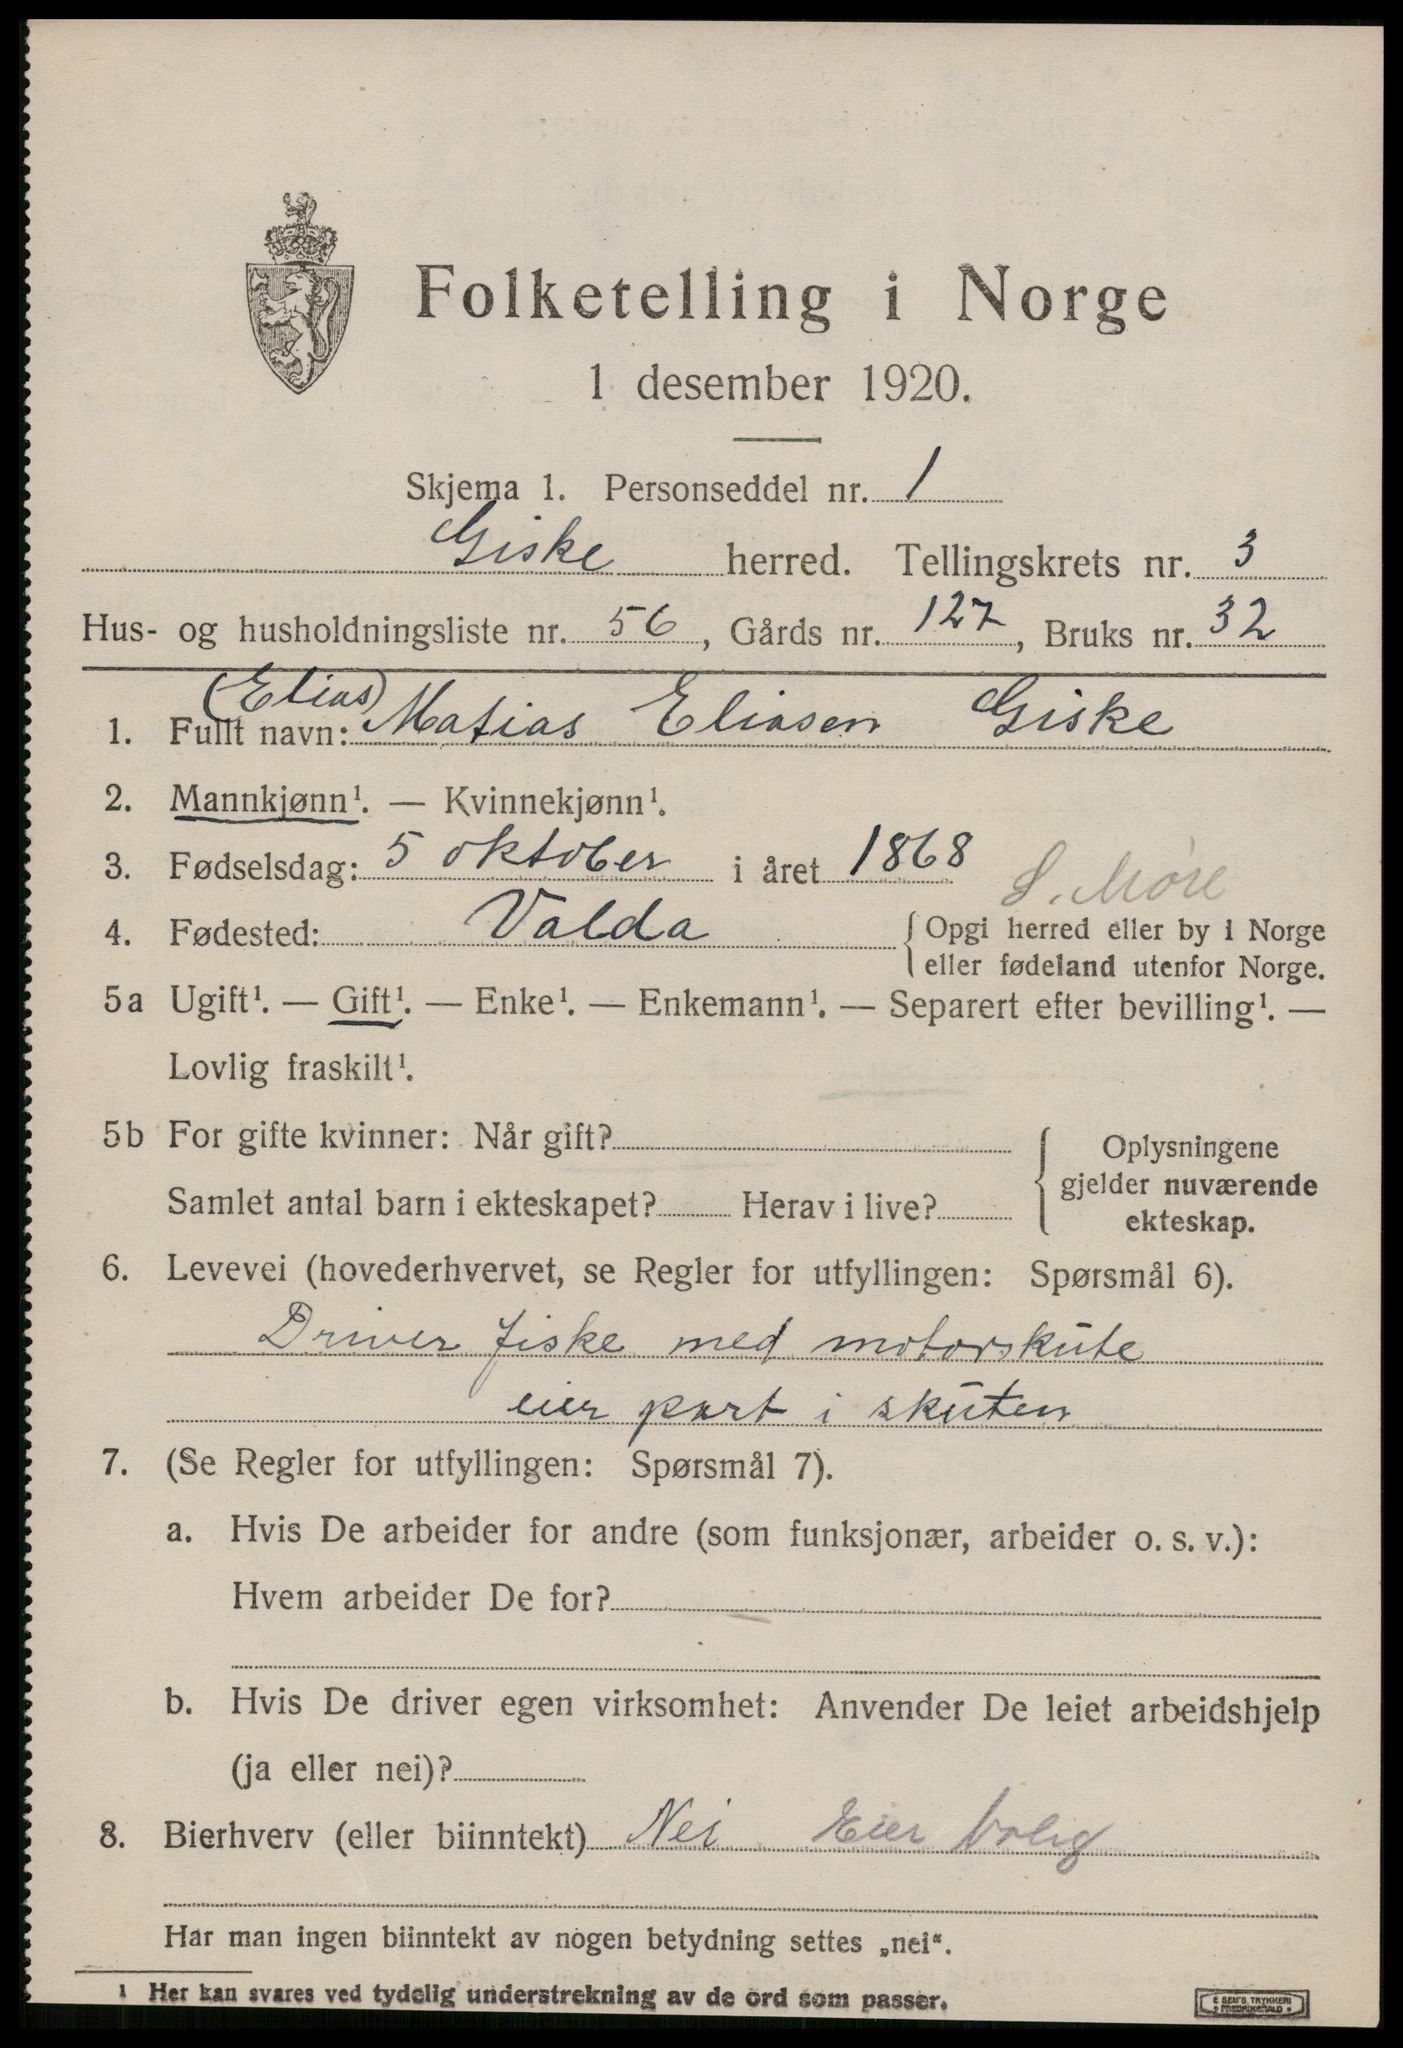 Folketelling i Norge
1 desember 1920.
Skjema 1. Personseddel nr. 1
Giske herred. Tellingskrets nr. 3
Hus- og husholdningsliste nr. 56, Gårds nr. 127, Bruks nr. 32
(Elias)
1. Fullt navn: Matias Eliasen Giske
2. Mannkjønn¹. — Kvinnekjønn¹.
3. Fødselsdag: 5 oktober i året 1868
S. Møre
4. Fødested: Valda {Opgi herred eller by i Norge
eller fødeland utenfor Norge.
5a Ugift¹. — Gift¹. — Enke¹. — Enkemann¹. — Separert efter bevilling¹. —
Lovlig fraskilt¹.
5b For gifte kvinner: Når gift?
Samlet antal barn i ekteskapet? Herav i live?
Oplysningene
gjelder nuværende
ekteskap.
6. Levevei (hovederhvervet, se Regler for utfyllingen: Spørsmål 6).
Driver fiske med motorskute
eier part i skuten
7. (Se Regler for utfyllingen: Spørsmål 7).
a. Hvis De arbeider for andre (som funksjonær, arbeider o. s. v.):
Hvem arbeider De for?
b. Hvis De driver egen virksomhet: Anvender De leiet arbeidshjelp
(ja eller nei)?
8. Bierhverv (eller biinntekt) Nei Eier bolig
Har man ingen biinntekt av nogen betydning settes „nei“.
¹ Her kan svares ved tydelig understrekning av de ord som passer.
E SEM'S TRYKKERI
FREDRIKSHALD